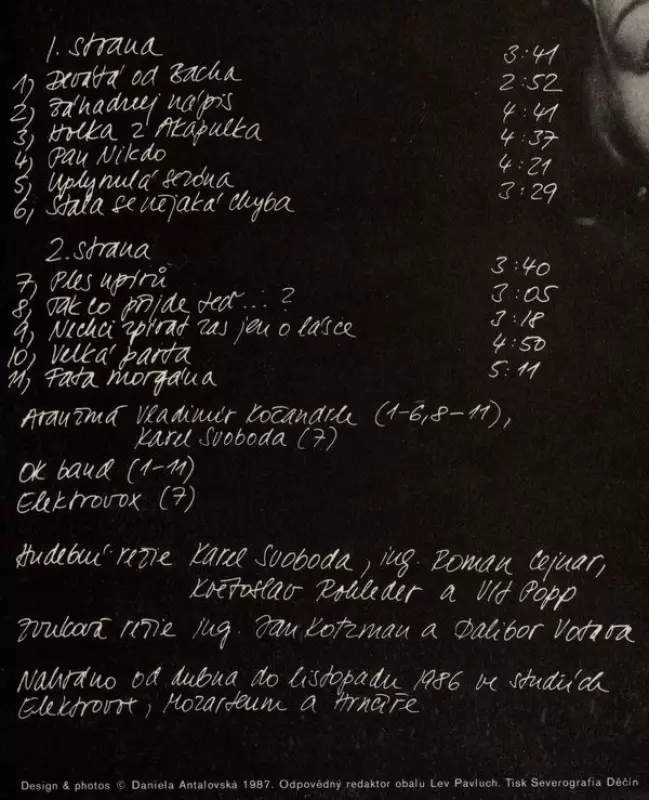 1. strana
1, Devátá od Bacha 3:41
2, Záhadnej nápis 2:52
3, Holka z Akapulka 4:41
4, Pan Nikdo 4:37
5, Uplynulá sezóna 4:21
6, Stala se nějaká chyba 3:29
2. strana
7, Ples upírů 3:40
8, Tak co přijde teď...? 3:05
9, Nechci zpívat zas jen o lásce 3:18
10, Velká parta 4:50
11, Fata morgána 5:11
Aranžmá Vladimír Kočandrle (1-6, 8-11),
Karel Svoboda (7)
OK band (1-11)
Elektrovox (7)
Hudební režie Karel Svoboda, ing. Roman Cejnar,
Květoslav Rohleder a Vít Popp
Zvuková režie ing. Jan Kotzman a Dalibor Votava
Nahráno od dubna do listopadu 1986 ve studiích
Elektrovox, Mozarteum a Hrnčíře
Design & photos © Daniela Antalovská 1987. Odpovědný redaktor obalu Lev Pavluch. Tisk Severografia Děčín